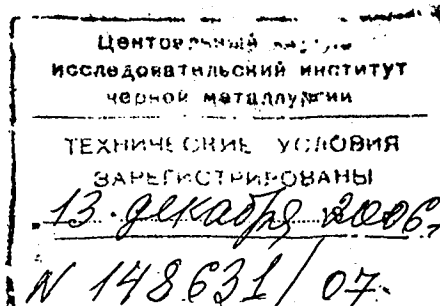 Центральный научно
исследовательский институт
черной металлургии
ТЕХНИЧЕСКИЕ УСЛОВИЯ
ЗАРЕГИСТРИРОВАНЫ
13 декабря 2006,
N 148631/07